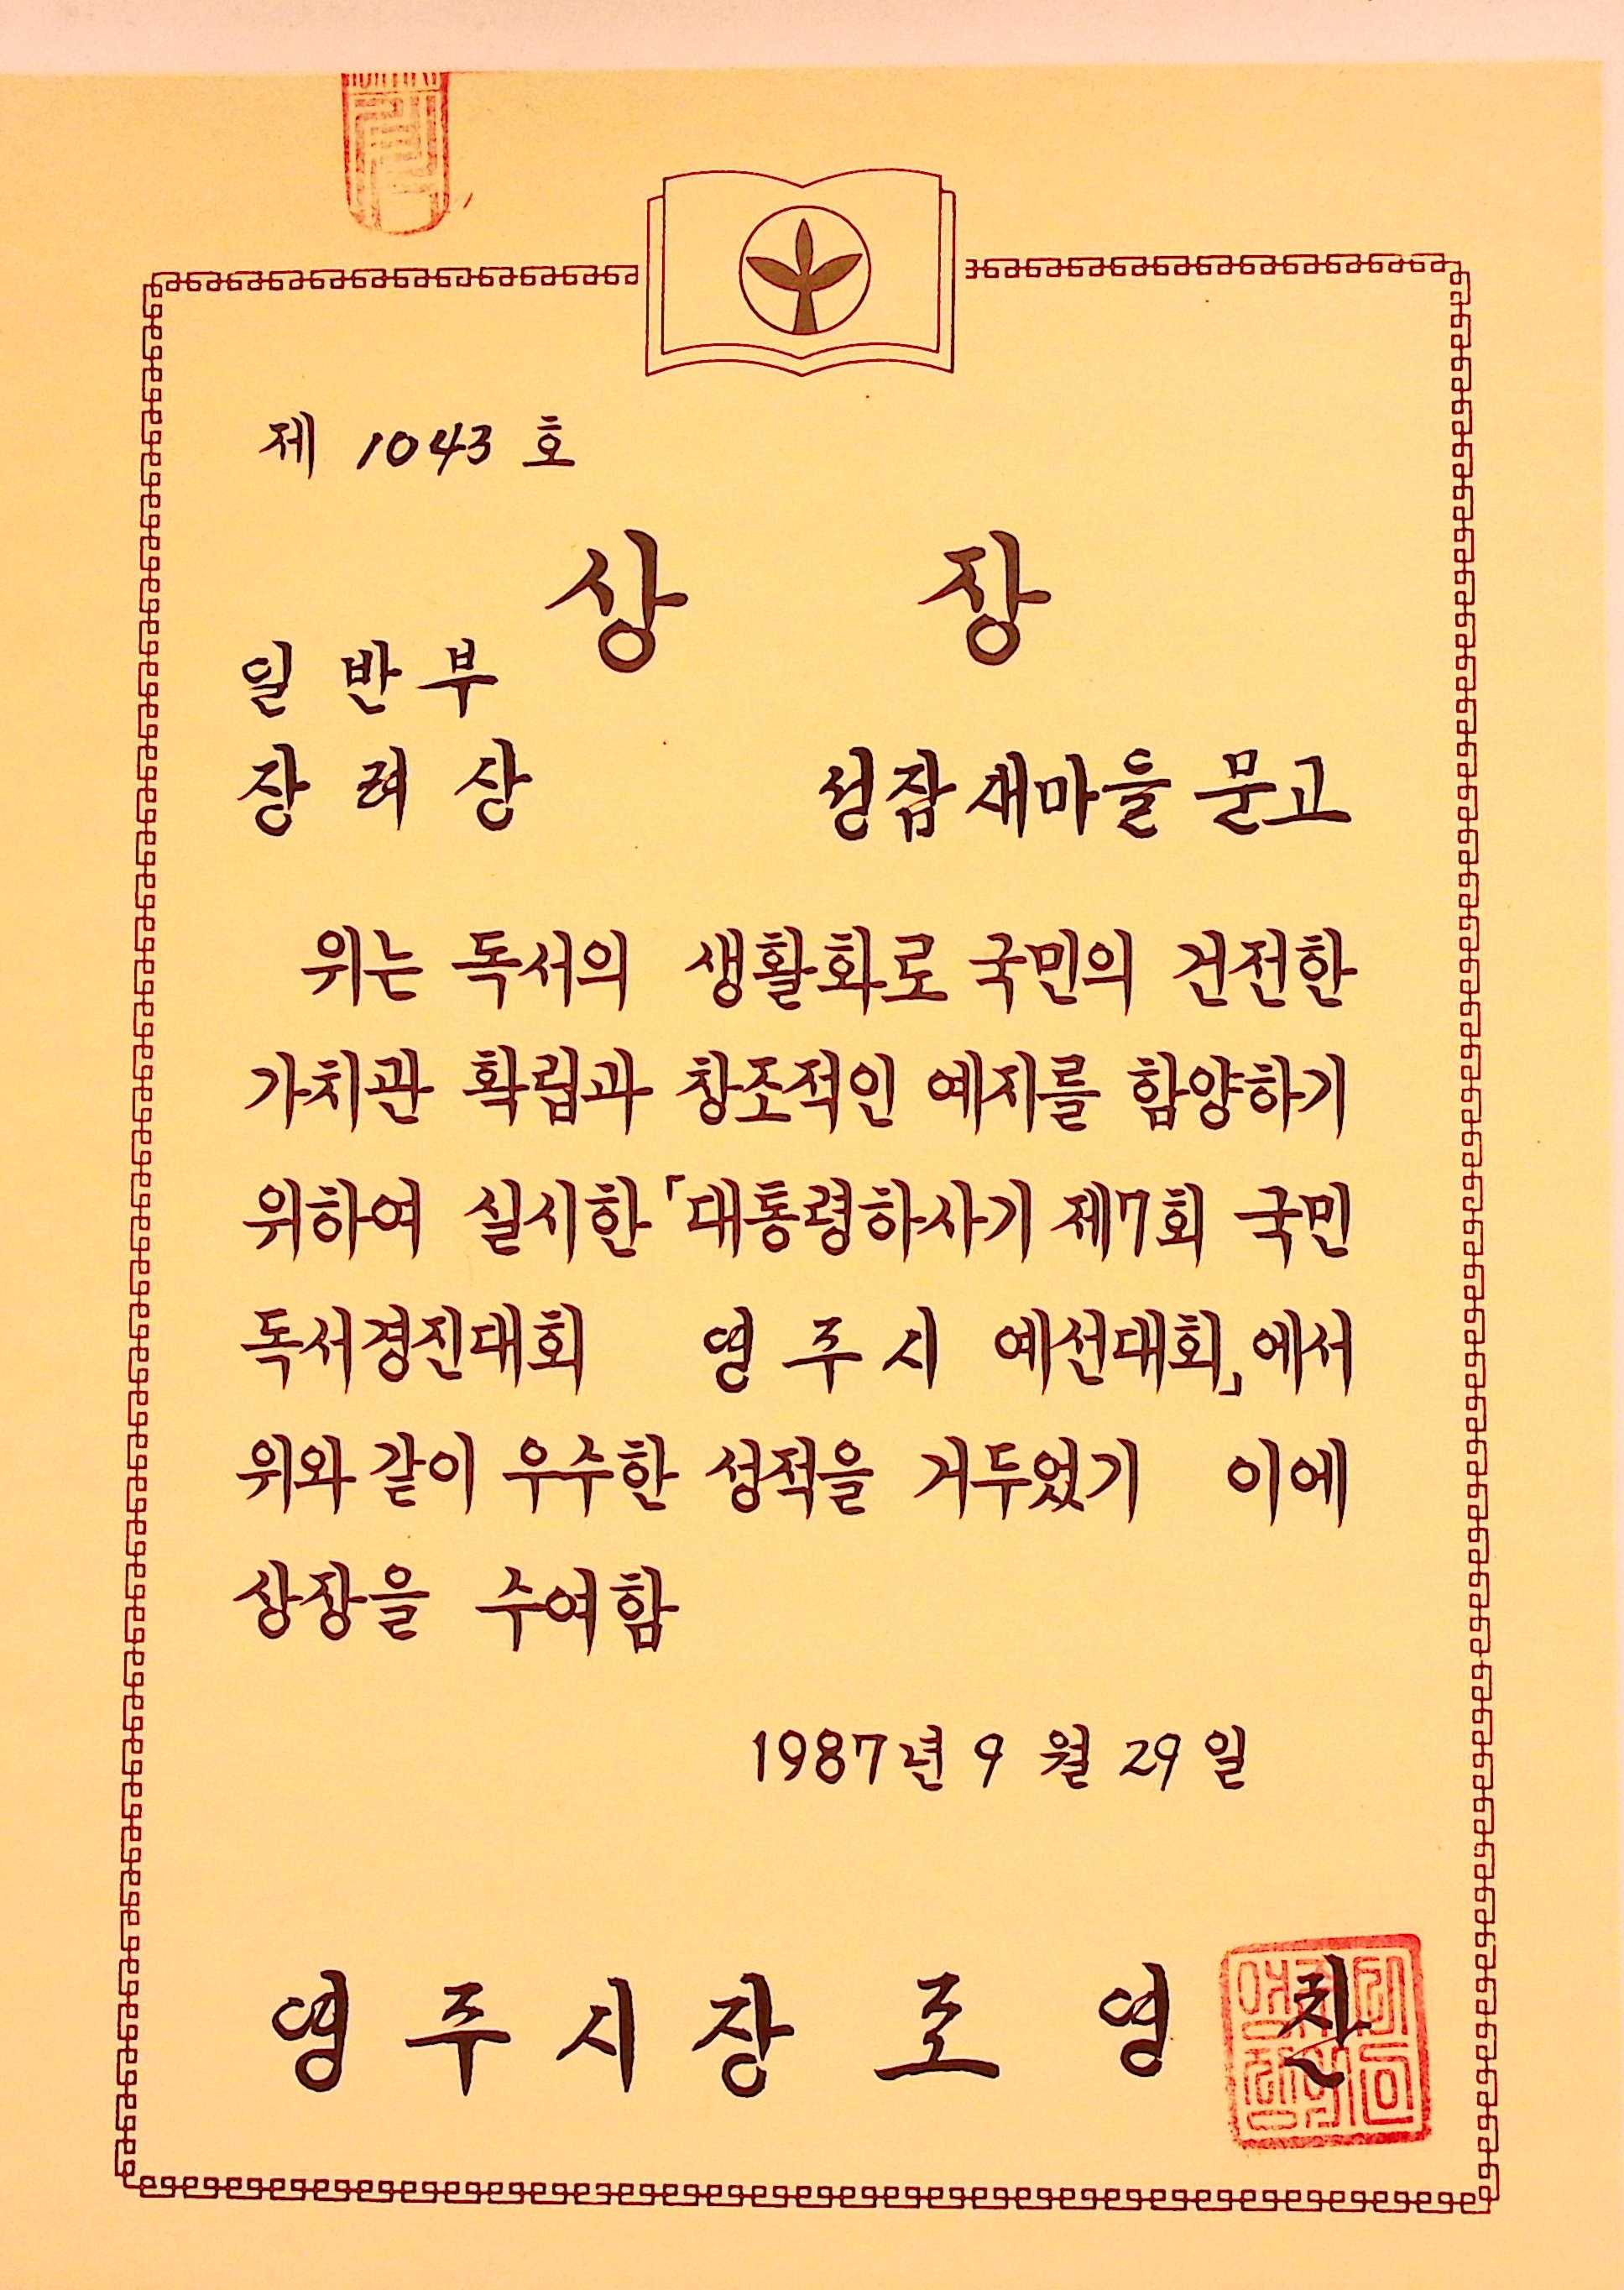 제 1043 호
상 장
일반부
장려상 성잠새마을문고
위는 독서의 생활화로 국민의 건전한
가치관 확립과 창조적인 예지를 함양하기
위하여 실시한 「대통령하사기 제7회 국민
독서경진대회 영주시 예선대회」에서
위와 같이 우수한 성적을 거두었기 이에
상장을 수여함
1987년 9월 29일
영주시장 조영